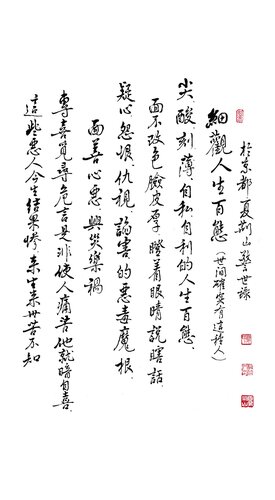 於京都 夏荊山 警世錄
細觀人生百態 (世間確實有這種人)
尖酸刻薄自私自利的人生百態.
面不改色臉皮厚 瞪着眼睛説瞎話.
疑心怨恨仇視. 謟害的惡毒魔根.
面善心惡 興災樂禍
專喜覓尋危言是非使人痛苦他就暗自喜.
這些惡人今生結果慘. 來生來世苦不知